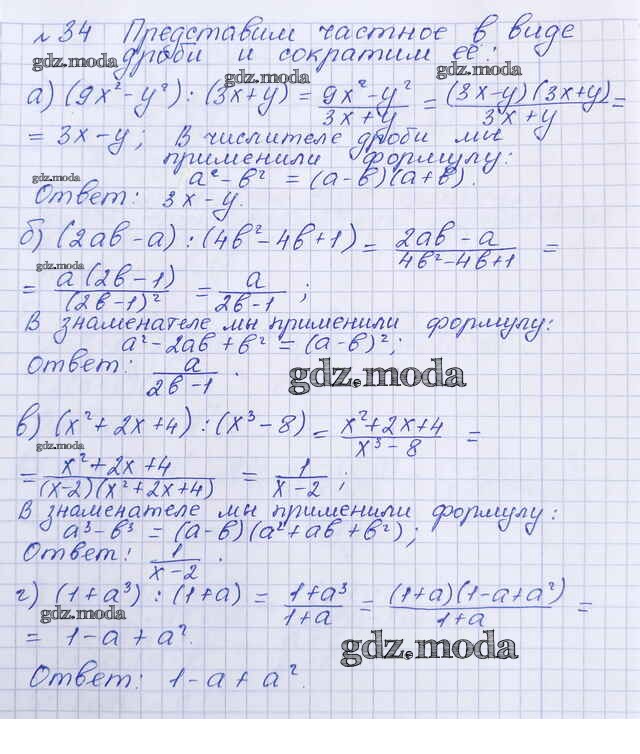 № 34 Представим частное в виде
дроби и сократим её:
gdz.moda gdz.moda gdz.moda
а) (9x² - y²) : (3x+y) = (9x² - y²)/(3x + y) = ((3x-y)(3x+y))/(3x + y) =
= 3x - y; В числителе дроби мы
применили формулу:
gdz.moda
a² - b² = (a - b)(a + b).
Ответ: 3x - y.
б) (2ab - a) : (4b² - 4b + 1) = (2ab - a)/(4b² - 4b + 1) =
gdz.moda
= (a(2b - 1))/((2b - 1)²) = a/(2b - 1) ;
В знаменателе мы применили формулу:
a² - 2ab + b² = (a - b)²;
Ответ: a/(2b - 1) .
gdz.moda
в) (x² + 2x + 4) : (x³ - 8) = (x² + 2x + 4)/(x³ - 8) =
gdz.moda
= (x² + 2x + 4)/((x-2)(x² + 2x + 4)) = 1/(x - 2) ;
В знаменателе мы применили формулу:
a³ - b³ = (a - b)(a² + ab + b²);
Ответ: 1/(x - 2) .
г) (1 + a³) : (1 + a) = (1 + a³)/(1 + a) = ((1 + a)(1 - a + a²))/(1 + a) =
gdz.moda
= 1 - a + a².
gdz.moda
Ответ: 1 - a + a².